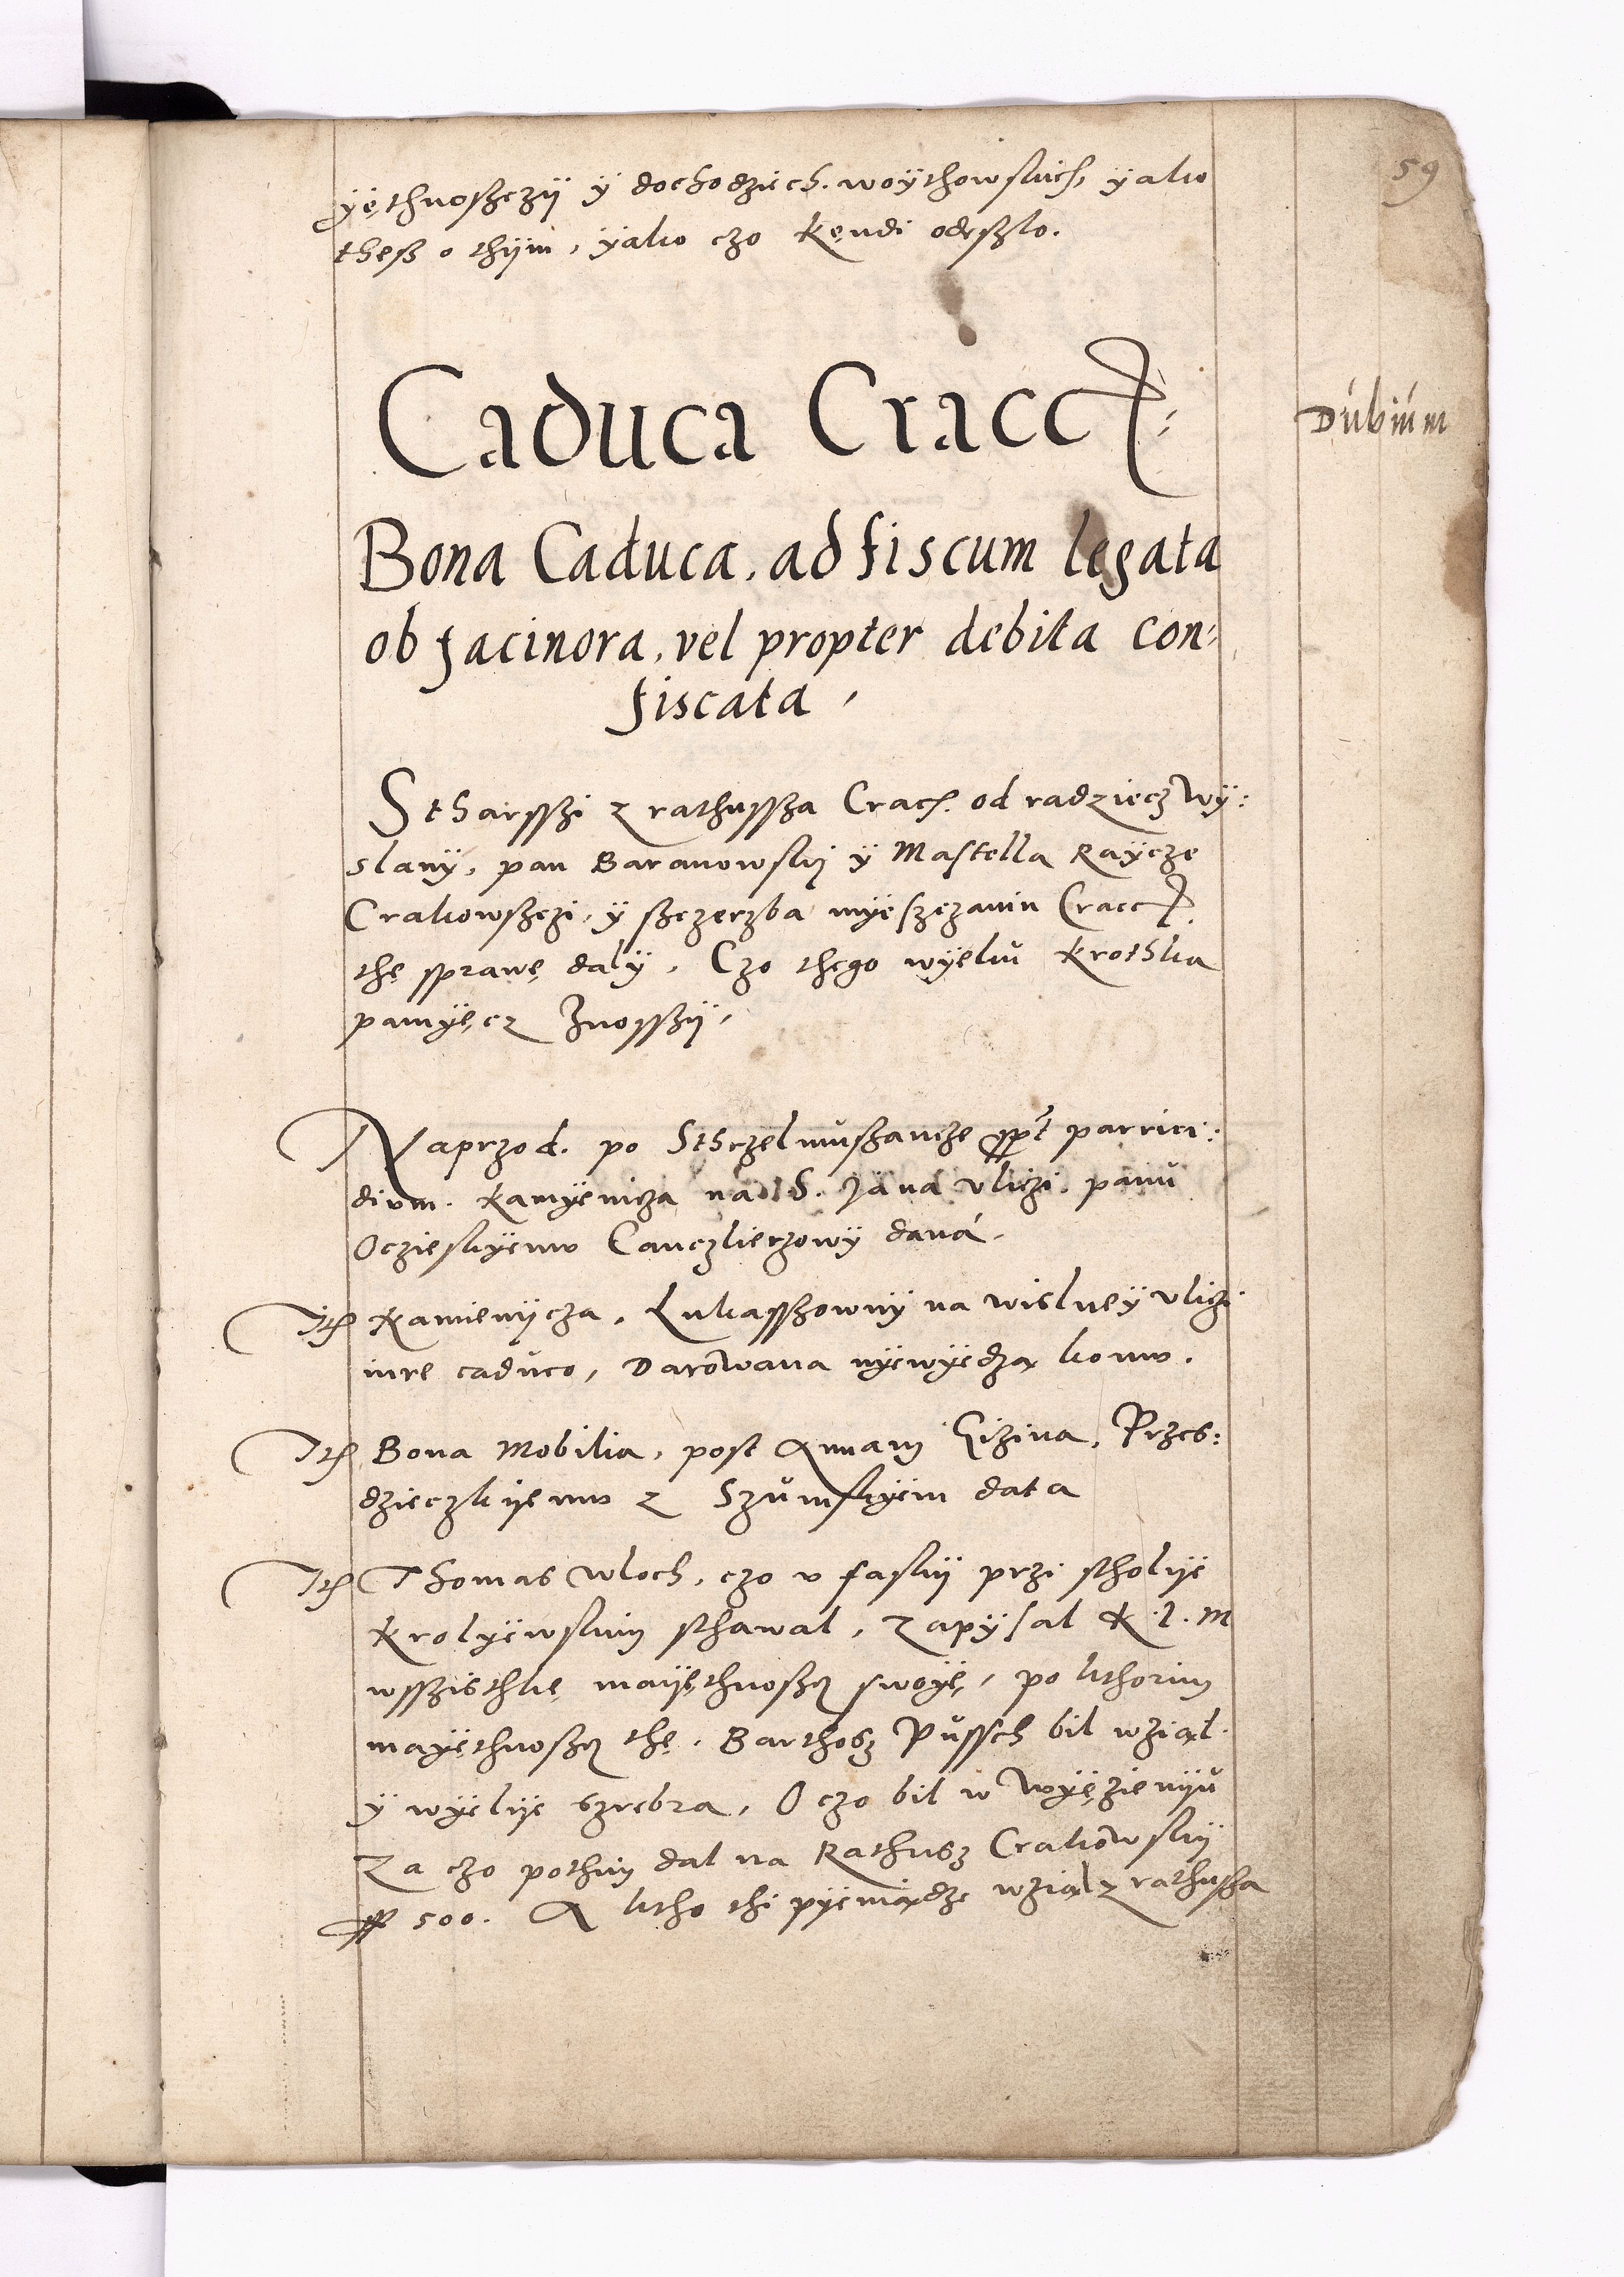 59
yęthnoszczÿ ÿ dochodziech. woÿthowskich, ÿako
thesz o thÿm, ÿako czo kędi odeszlo.
Caduca Cracc
Dubium
Bona Caduca, ad fiscum legata
ob facinora, vel propter debita con:
fiscata,
Stharsszi z rathussza Crac. od radziecz wÿ:
slanÿ, pan Baranowskÿ ÿ Mastella Raÿcze
Crakowszczi, ÿ szczerzba mÿeszczanin Cracc
thę sprawę dalÿ, Czo thego wÿelu krothka
pamÿęcz znosszÿ,
Naprzod. po Sthrzelmuszancze ppt parrici:
dium. Kamÿenicza na S. Jana uliczi, panu
Oczieskÿemu Canczlierzowÿ daná.
Itē Kamienÿcza, Lukasszownÿ na wislneÿ uliczi
iure caduco, Darowana nÿewÿedzą komu.
Itē Bona Mobilia, post Annam Gizina, Przes:
dzieczkÿemu z Szumskÿem data
Itē Thomas Wloch, czo v faskÿ przi stholÿe
Krolÿewskim sthawal, Zapÿsal K. I. M
wsszisthkę maÿęthnoszcz swoÿę, po kthorim
maÿęthnoszcz thę, Barthosz Pussch bil wziąl.
ÿ wÿelÿe szrebra, O czo bil w Wÿęzienÿu
Za czo pothim dal na Rathusz Crakowskÿ
ff 500. A ktho thi pÿeniądze wziąl z rathusza